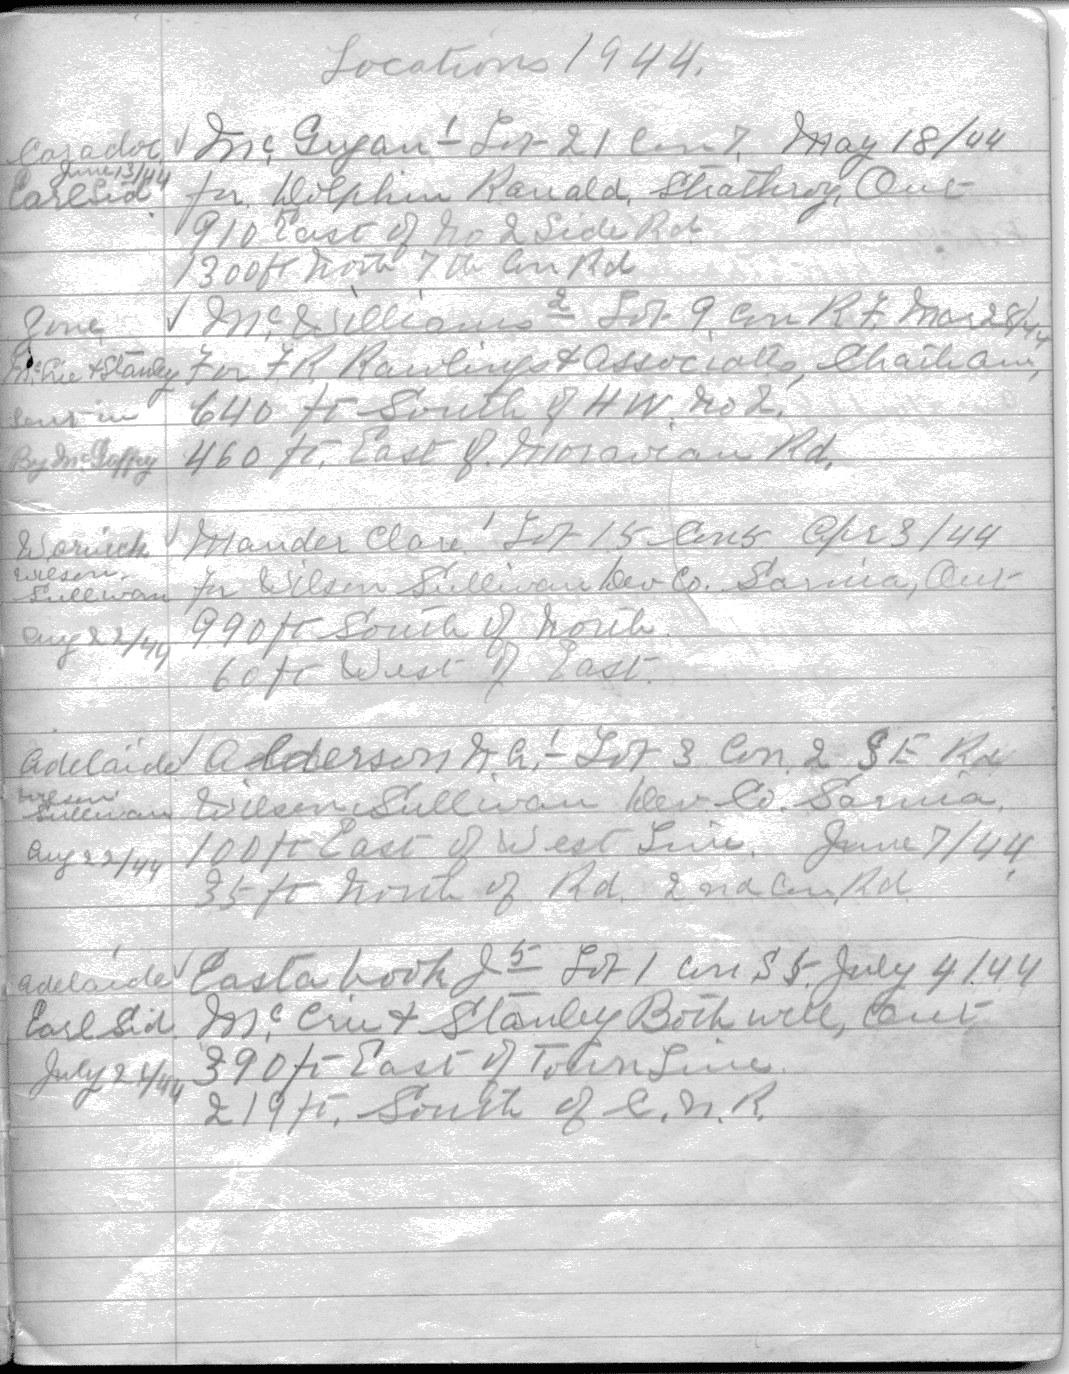 Locations 1944.
Caradoc √ McGugan 1 Lot 21 Con 7. May 18/44
June 13/44
Earl Sid. for Dolphin Ranald, Strathroy, Ont
910 East of No 2 Side Rd
1300 ft North 7th Con Rd
Zone √ McWilliams 2 Lot 9. Con R F. Mar 28/44
McCrie & Stanley For F R Rawlings & Associates, Chatham,
sent in 640 ft South of HW. No 2.
By McGuffey 460 ft. East of Moravian Rd.
Warwick √ Mander Clare 1 Lot 15 Con 5 Apr 3/44
Wilson
Sullivan for Wilson Sullivan Dev Co. Sarnia, Ont
Aug 22/44 990 ft South of North.
60 ft West of East.
Adelaide √ Adderson N.A. 1 Lot 3 Con. 2 S E Rd
Wilson
Sullivan Wilson Sullivan Dev Co. Sarnia.
Aug 22/44 100 ft East of West Line. June 7/44
35 ft North of Rd. 2nd Con. Rd
Adelaide √ Eastabrook J 5 Lot 1 Con S 5. July 4/44
Earl Sid. McCrie & Stanley Bothwell, Ont,
July 28/44 390 ft East of Town Line.
219 ft. South of C.N.R.